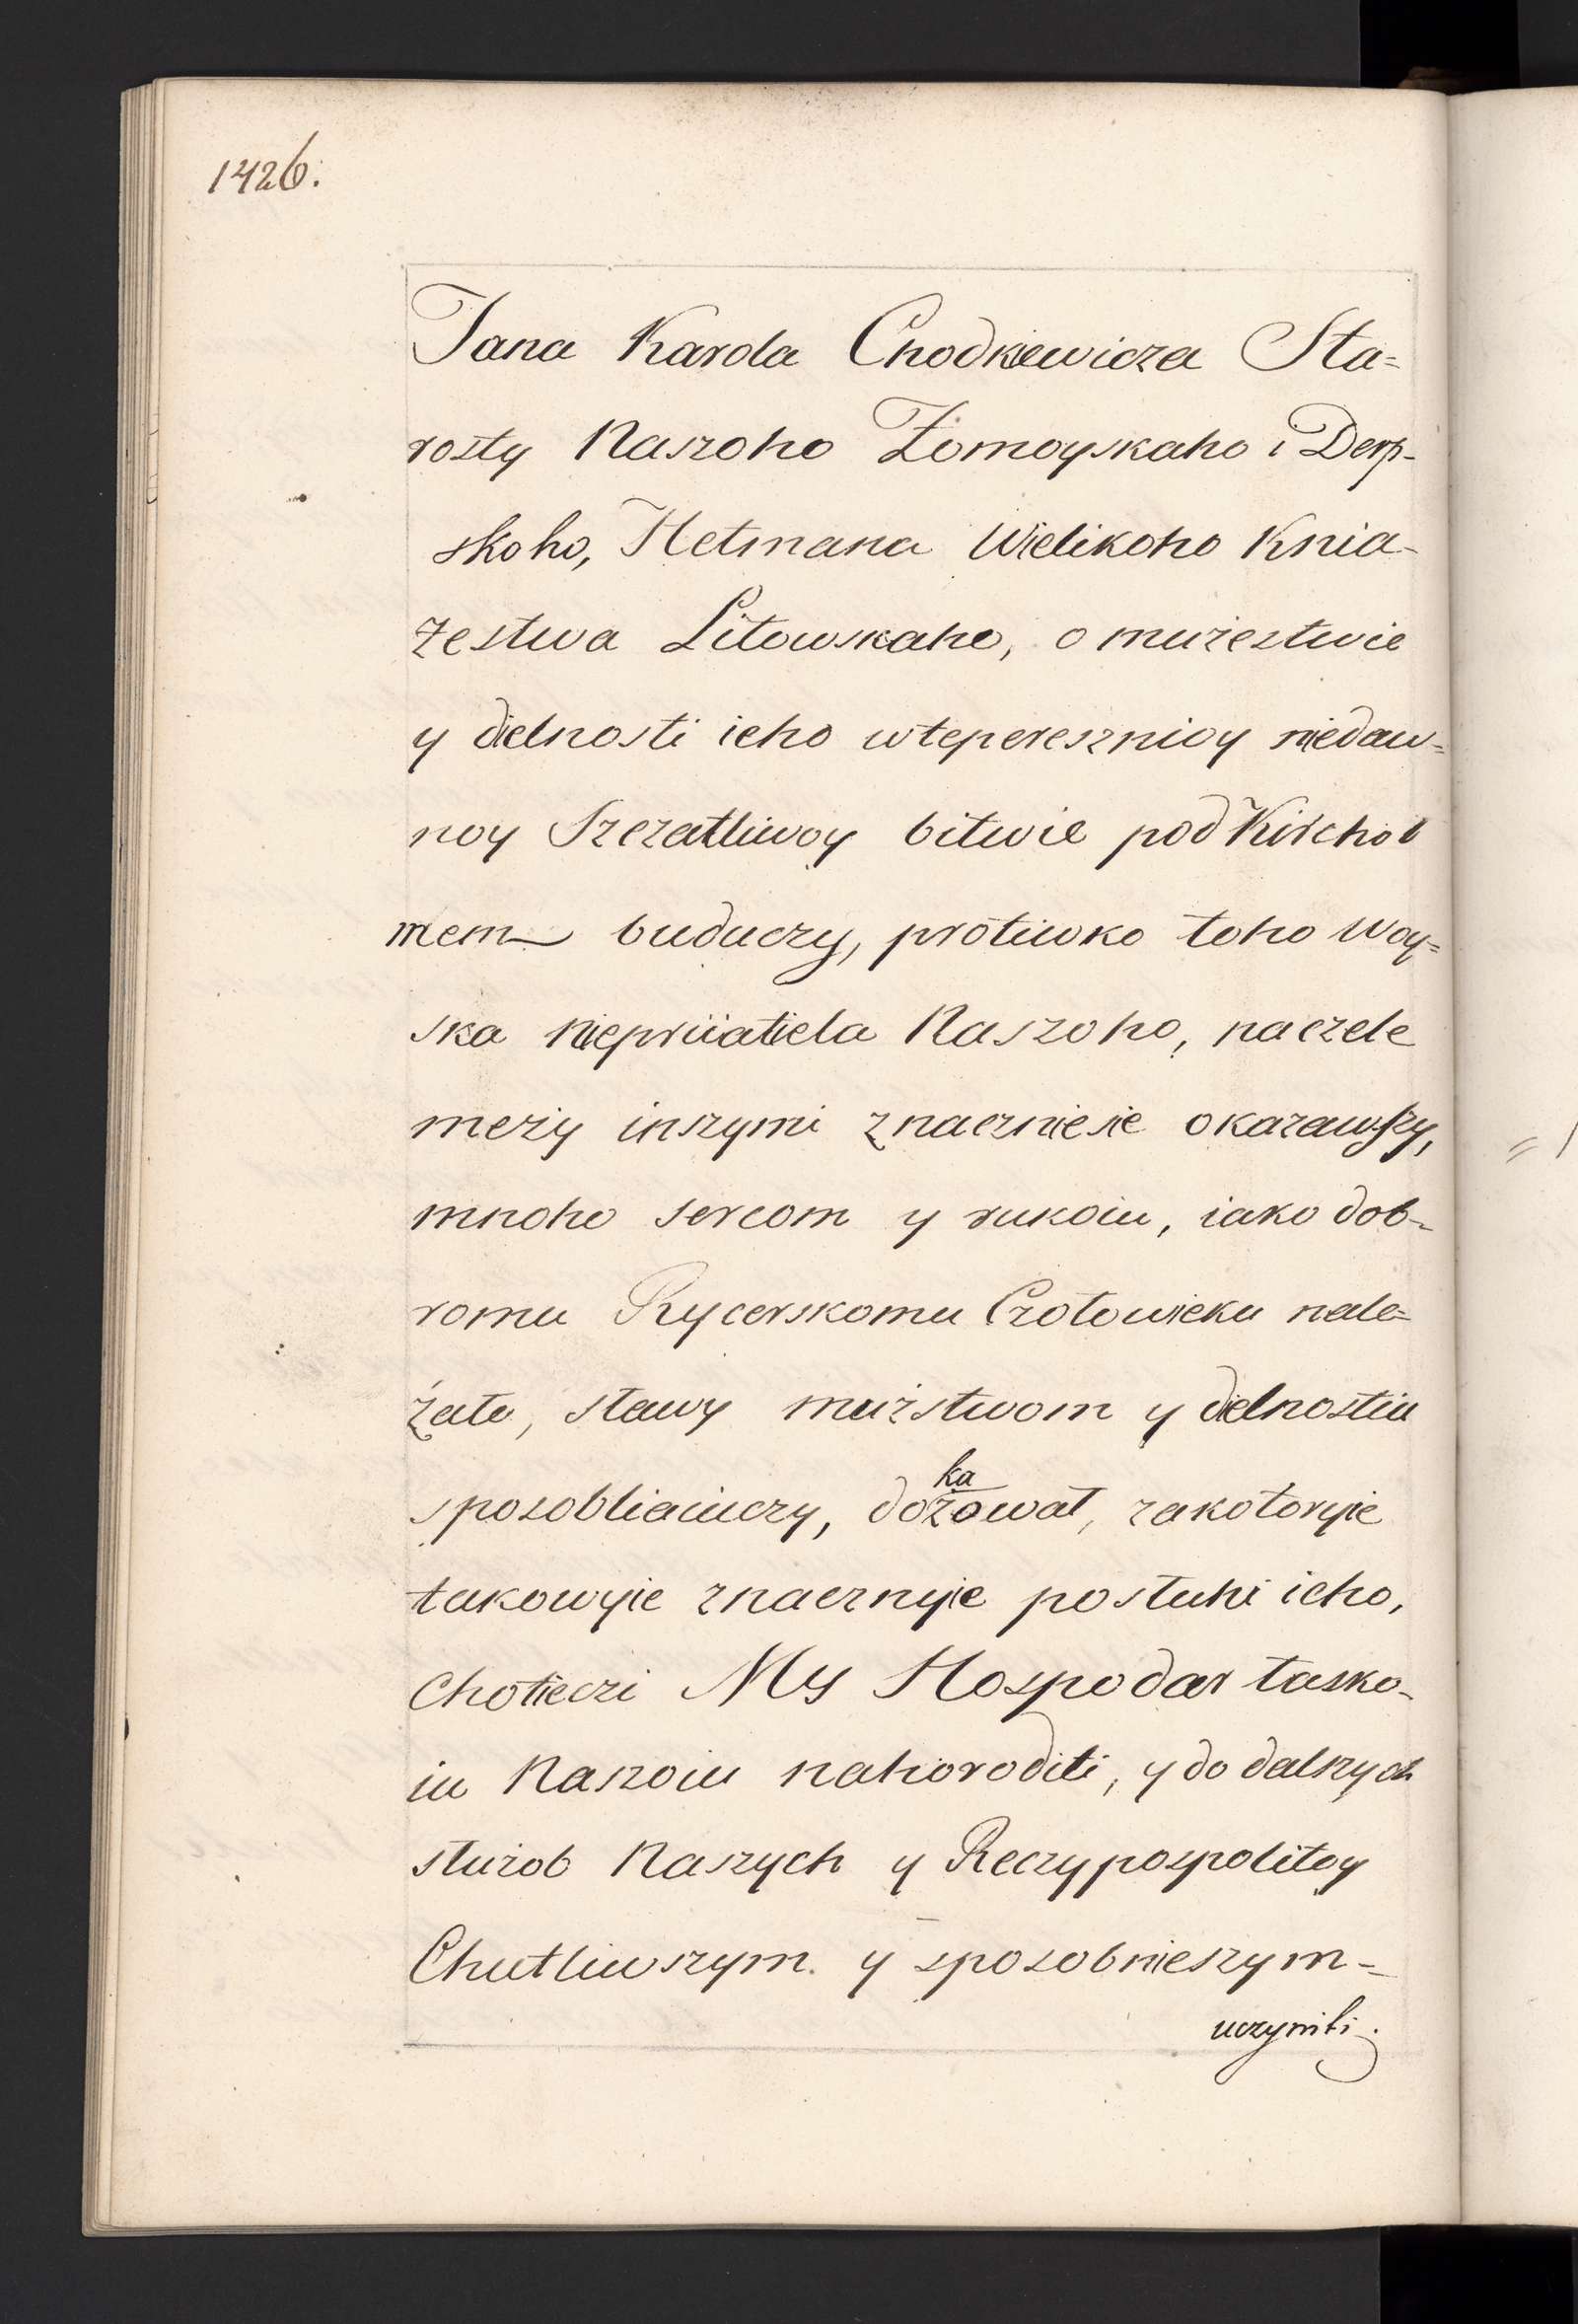 1426.
Jana Karola Chodkiewicza Sta=
rosty Naszoho Żomoyskaho i Derp-
skoho, Hetmana Wielikoho Knia-
żestwa Litowskaho, o mużestwie
y dielnosti ieho wteperesznioy niedaw=
noy Szczatliwoy bitwie pod Kirchol
mem buduczy, protiwko toho Woy=
ska Niepriiatiela Naszoho, naczele
meży inszymi znaczniesie okazawszy,
mnoho sercom y rukoiu, iako dob-
romu Rycerskomu Czołowieku nale=
żało, sławy mużstwom y dielnostiu
sposobliaiuczy, dożował, zakotoryie
ka
takowyie znacznyie posłuhi ieho,
Chotieczi My Hospodar łasko-
iu Naszoiu nahoroditi, y do dalszych
służob Naszych y Reczypospolitoy
Chutliwszym y sposobnieszym=
uczyniti.